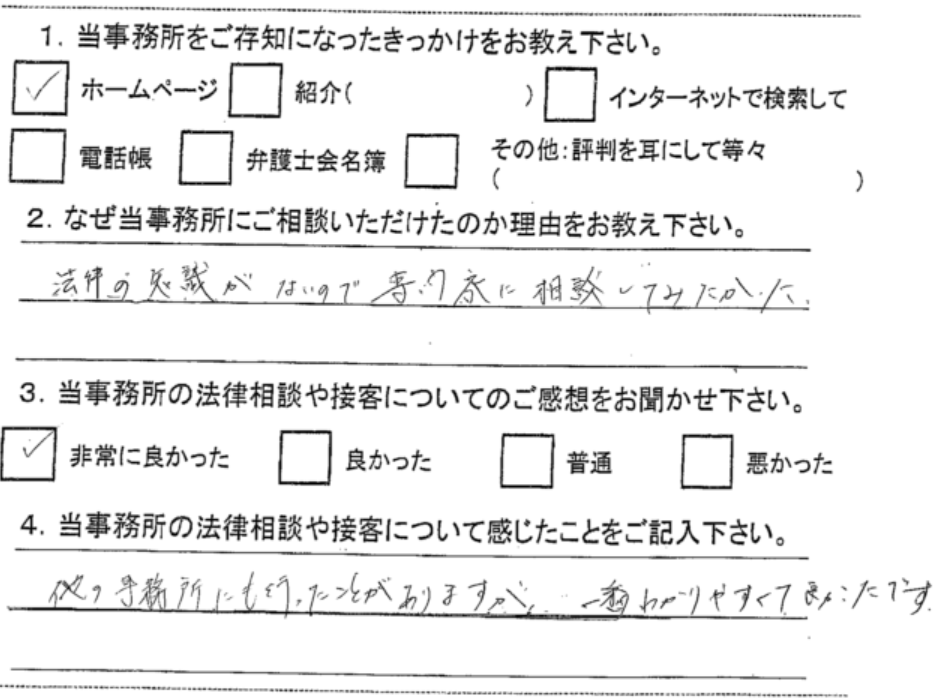 1. 当事務所をご存知になったきっかけをお教え下さい。
✓ ホームページ □ 紹介( ) □ インターネットで検索して
□ 電話帳 □ 弁護士会名簿 □ その他:評判を耳にして等々
( )
2. なぜ当事務所にご相談いただけたのか理由をお教え下さい。
法律の知識がないので専門家に相談してみたかった。
3. 当事務所の法律相談や接客についてのご感想をお聞かせ下さい。
✓ 非常に良かった □ 良かった □ 普通 □ 悪かった
4. 当事務所の法律相談や接客について感じたことをご記入下さい。
他の事務所にも行ったことがありますが、一番わかりやすくて良かったです